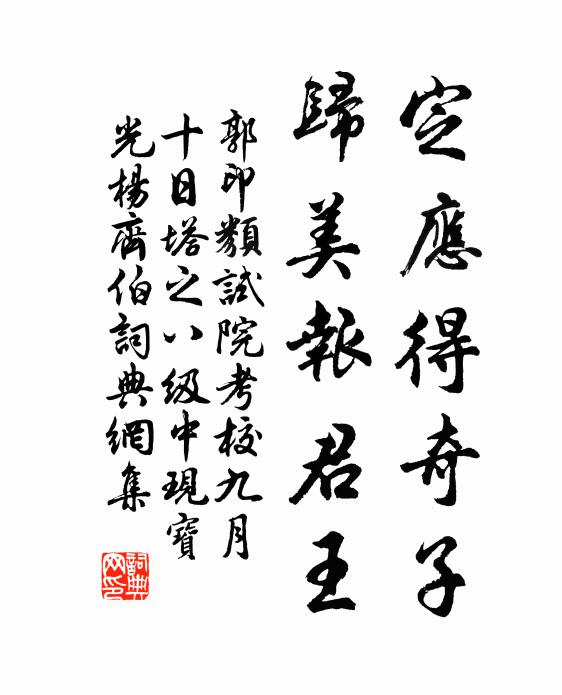 定應得奇子
歸美報君王
郭印類試院考校九月
十日塔之八級中現寶
光楊齊伯詞典網集
詞典网印